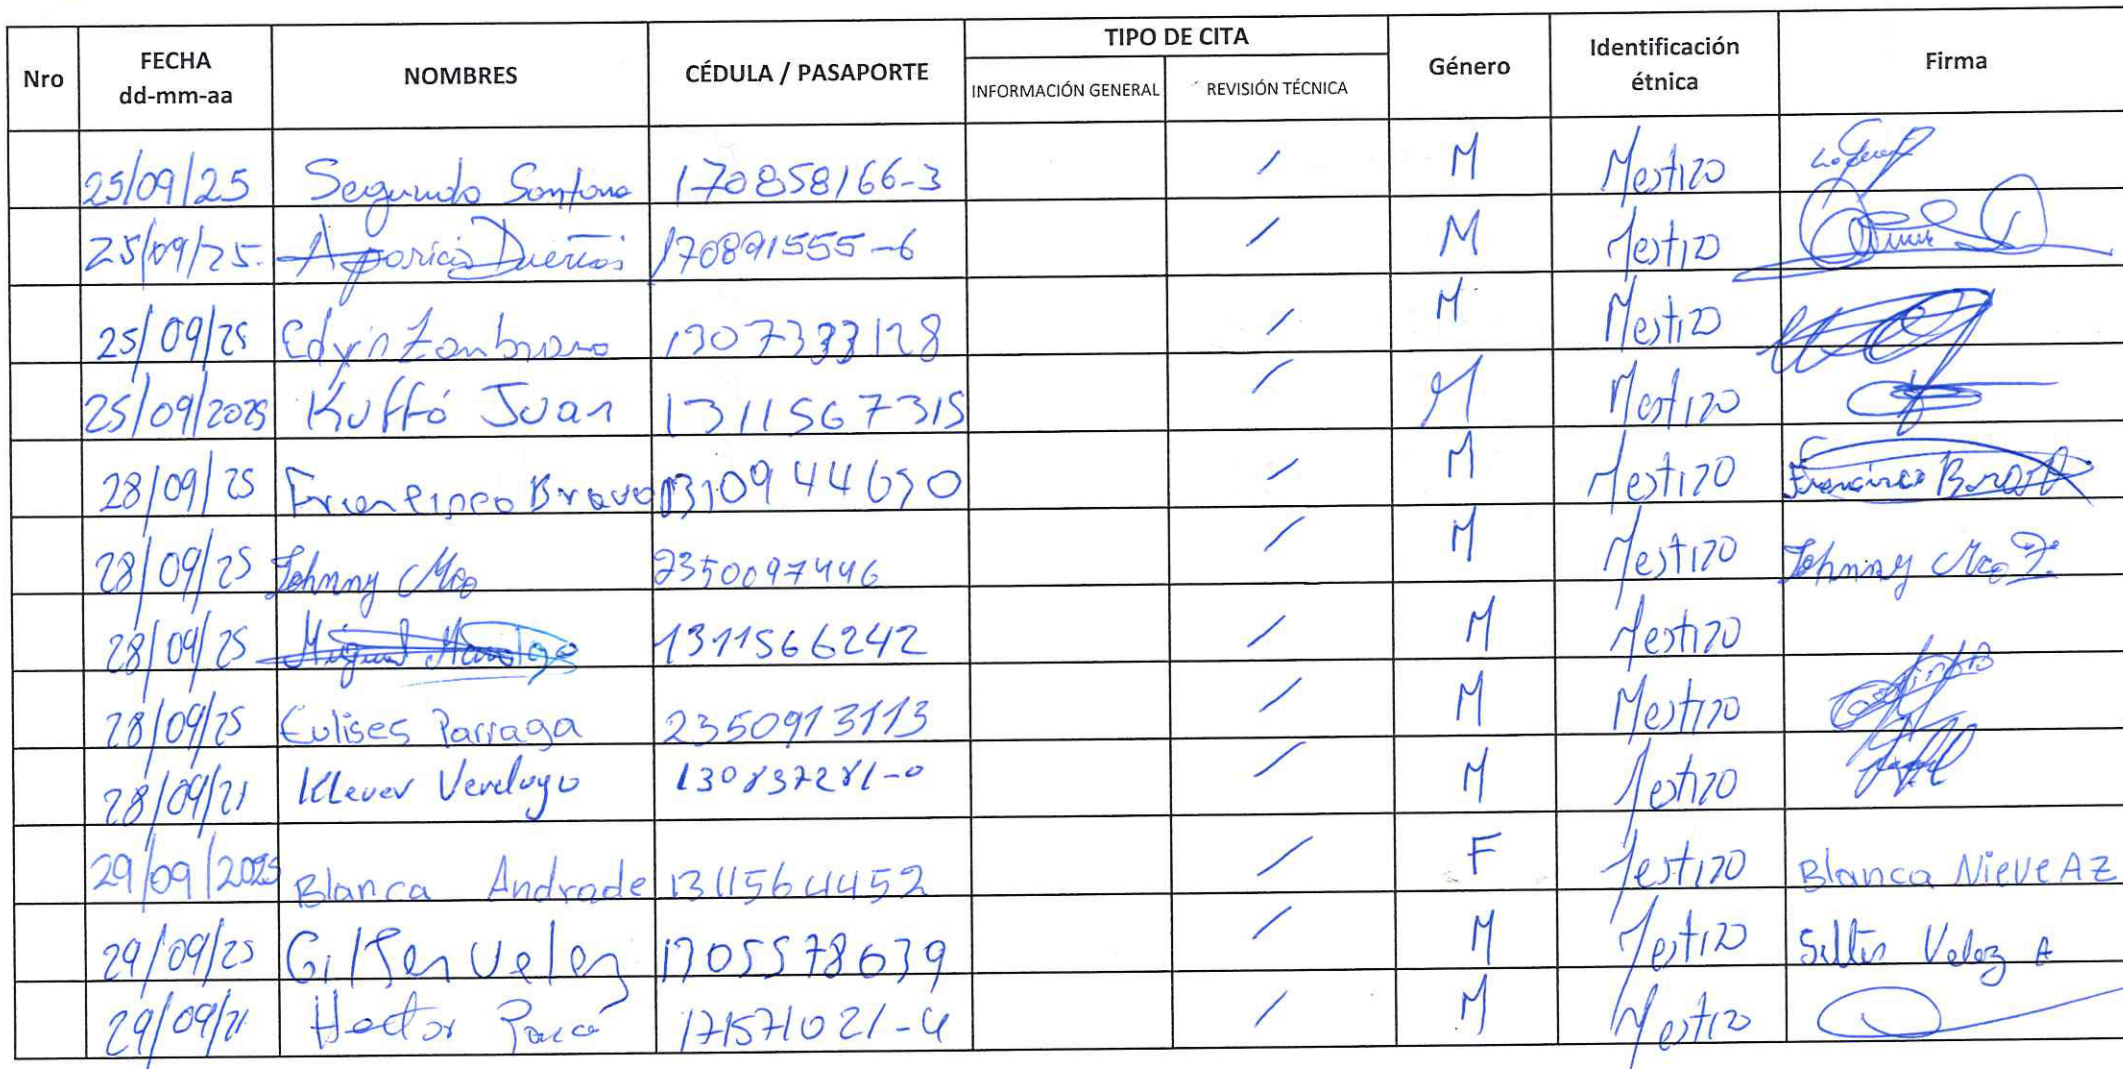 Nro FECHA dd-mm-aa NOMBRES CÉDULA / PASAPORTE TIPO DE CITA INFORMACIÓN GENERAL REVISIÓN TÉCNICA Género Identificación étnica Firma
25/09/25 Segundo Santana 170858166-3 / M Mestizo
25/09/25. Aparicio Dueñas 170891555-6 / M Mestizo
25/09/25 Edyn Zambrano 1307333128 / M Mestizo
25/09/2025 Kuffó Juan 1311567315 / M Mestizo
28/09/25 Francisco Bravo / M Mestizo Francisco Bravo
28/09/25 Johnny 2350097446 / M Mestizo Johnny
28/09/25 Miguel 1311566242 / M Mestizo
28/09/25 Eulises Parraga 2350913113 / M Mestizo
28/09/21 Klever Verduga 130837281-0 / M Mestizo
29/09/2025 Blanca Andrade 1311564452 / F Mestizo Blanca Nieve AZ
29/09/25 Velez / M Mestizo Velez A
29/09/21 Hector 171571021-4 / M Mestizo